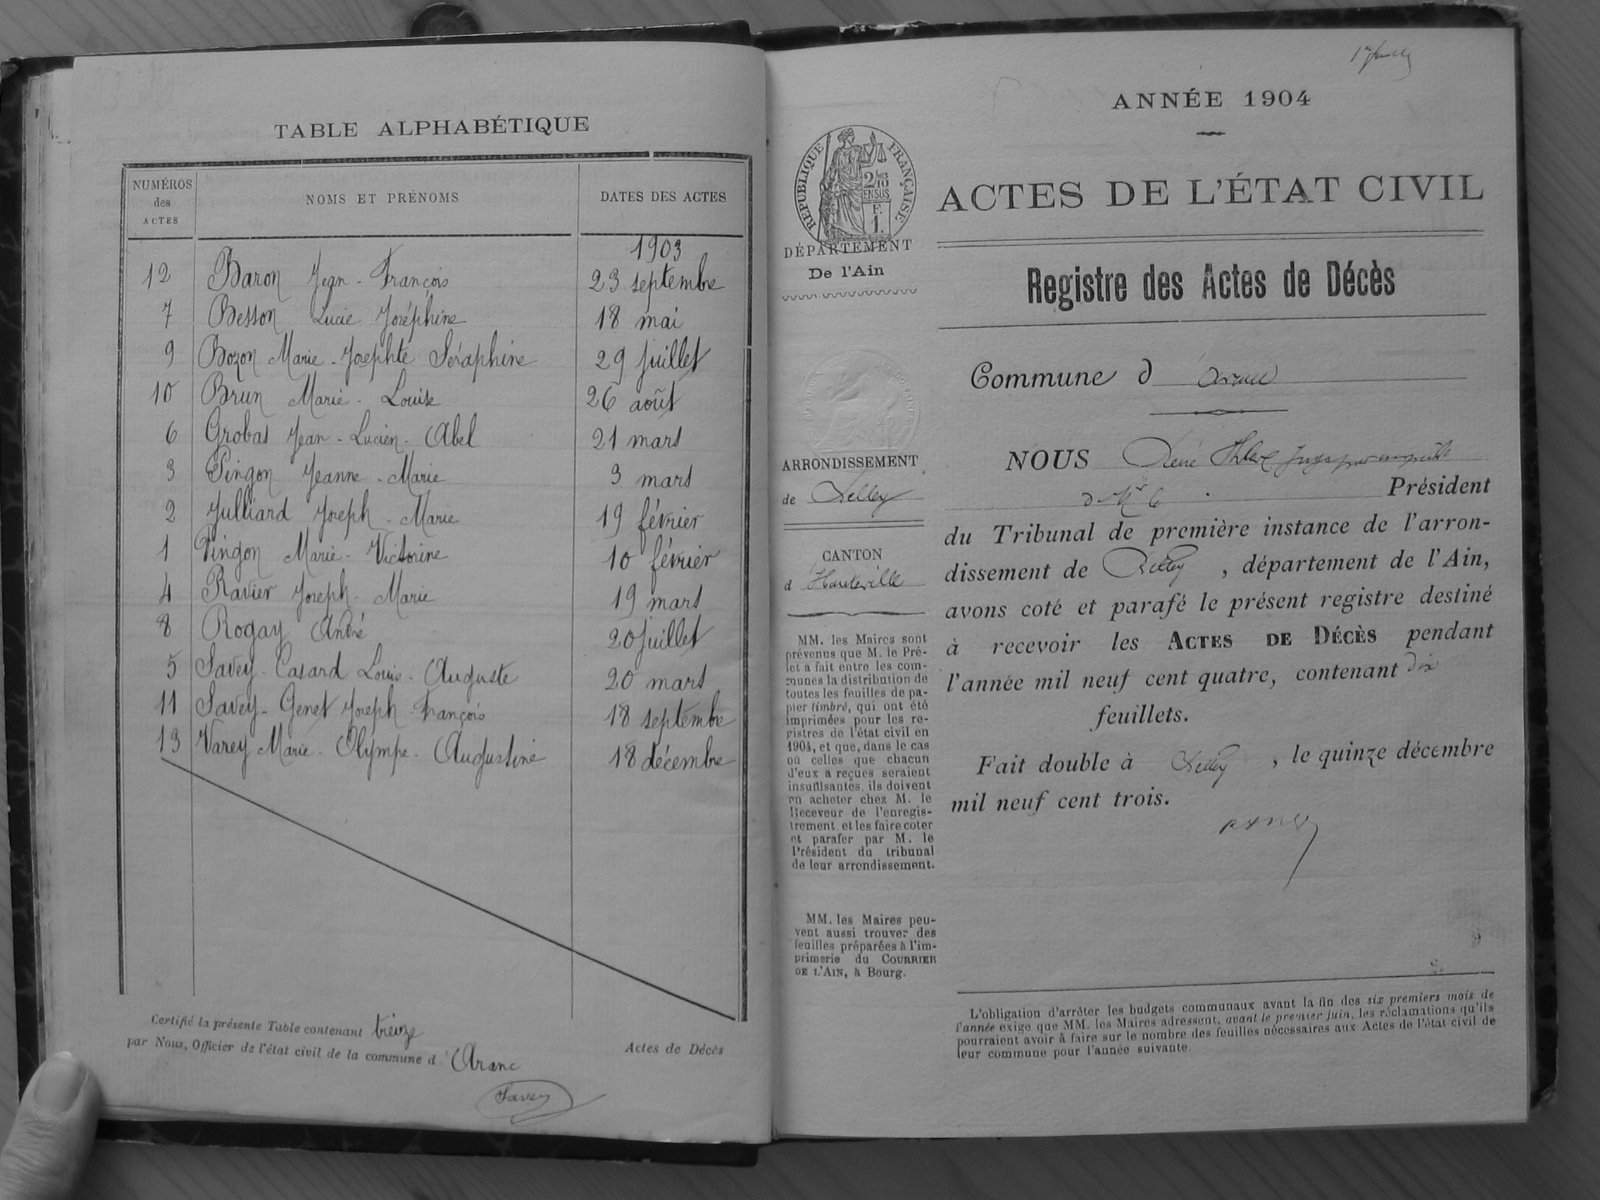 TABLE ALPHABÉTIQUE
NUMÉROS des ACTES NOMS ET PRÉNOMS DATES DES ACTES
1903
12 Baron Jean-François 23 septembre
7 Besson Lucie Joséphine 18 mai
9 Bozon Marie-Josephte Séraphine 29 juillet
10 Brun Marie-Louise 26 août
6 Grobas Jean-Lucien-Abel 21 mars
3 Pingon Jeanne-Marie 3 mars
2 Julliard Joseph-Marie 19 février
1 Pingon Marie-Victorine 10 février
4 Ravier Joseph-Marie 19 mars
8 Rogay André 20 juillet
5 Savey-Casard Louis-Auguste 20 mars
11 Savey-Genet Joseph-François 18 septembre
13 Varey Marie-Olympe-Augustine 18 décembre
Certifié la présente Table contenant treize Actes de Décès
par Nous, Officier de l'état civil de la commune d'Aranc
Savey
ANNÉE 1904
RÉPUBLIQUE FRANÇAISE
2/10
EN SUS
F.
1.
DÉPARTEMENT
De l'Ain
ARRONDISSEMENT
de Belley
CANTON
d Hauteville
MM. les Maires sont
prévenus que M. le Pré-
fet a fait entre les com-
munes la distribution de
toutes les feuilles de pa-
pier timbré, qui ont été
imprimées pour les re-
gistres de l'état civil en
1904, et que, dans le cas
où celles que chacun
d'eux a reçues seraient
insuffisantes, ils doivent
en acheter chez M. le
Receveur de l'enregis-
trement, et les faire coter
et parafer par M. le
Président du tribunal
de leur arrondissement.
MM. les Maires peu-
vent aussi trouver des
feuilles préparées à l'im-
primerie du COURRIER
DE L'AIN, à Bourg.
ACTES DE L'ÉTAT CIVIL
Registre des Actes de Décès
Commune d Aranc
NOUS
Président
du Tribunal de première instance de l'arron-
dissement de Belley, département de l'Ain,
avons coté et parafé le présent registre destiné
à recevoir les ACTES DE DÉCÈS pendant
l'année mil neuf cent quatre, contenant dix
feuillets.
Fait double à Belley, le quinze décembre
mil neuf cent trois.
L'obligation d'arrêter les budgets communaux avant la fin des six premiers mois de
l'année exige que MM. les Maires adressent, avant le premier juin, les réclamations qu'ils
pourraient avoir à faire sur le nombre des feuilles nécessaires aux Actes de l'état civil de
leur commune pour l'année suivante.